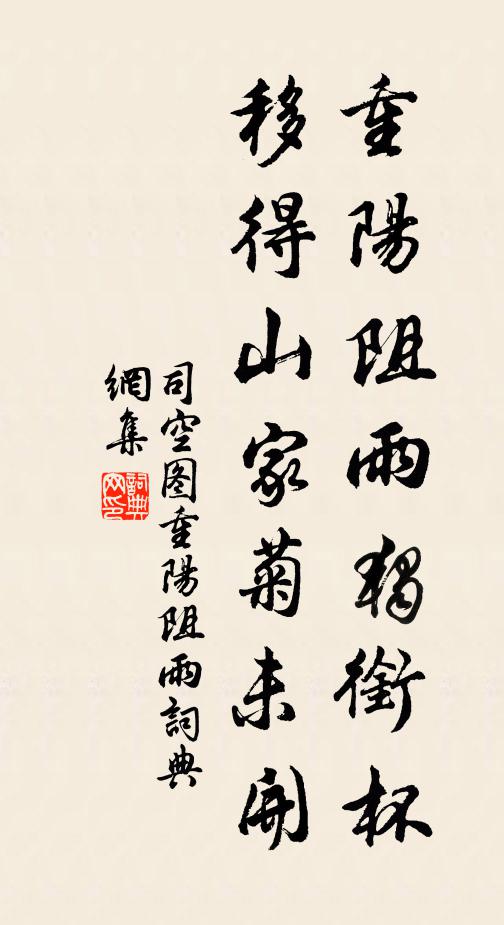 重陽阻雨獨銜杯
移得山家菊未開
司空图重陽阻雨詞典
網集
詞典
网印